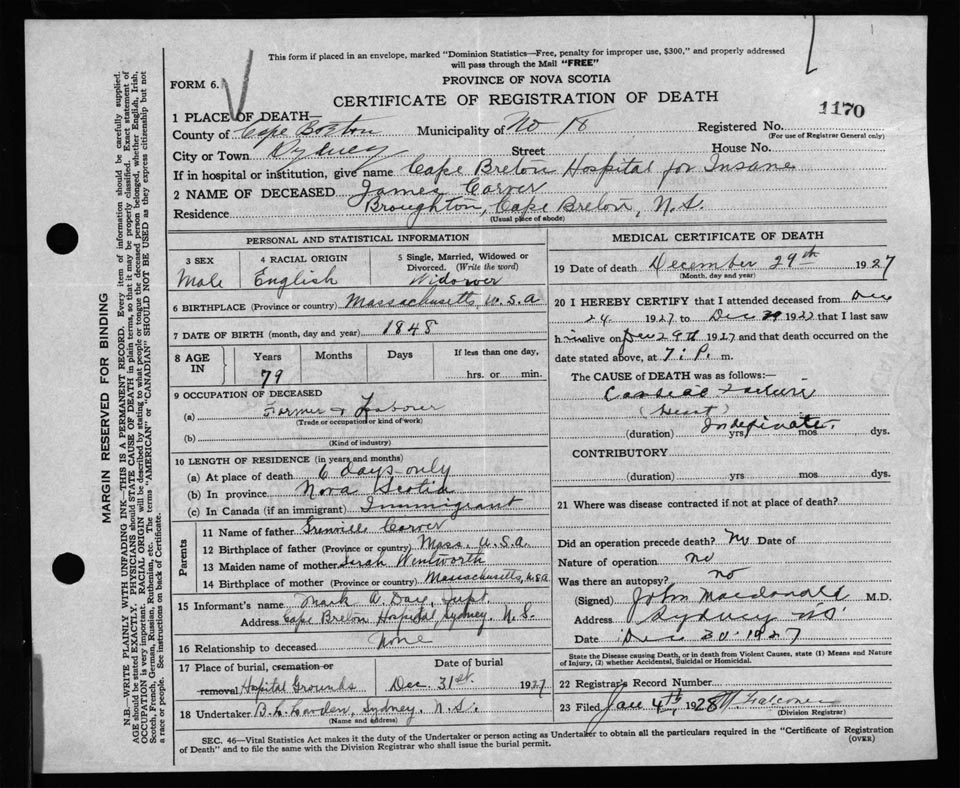 This form if placed in an envelope, marked "Dominion Statistics—Free, penalty for improper use, $300," and properly addressed
will pass through the Mail "FREE"
FORM 6.
PROVINCE OF NOVA SCOTIA
CERTIFICATE OF REGISTRATION OF DEATH
1170
1 PLACE OF DEATH
County of Cape Breton Municipality of No 18 Registered No.
(For use of Registrar General only)
City or Town Sydney Street House No.
If in hospital or institution, give name Cape Breton Hospital for Insane
2 NAME OF DECEASED James Carver
Residence Broughton, Cape Breton, N.S.
(Usual place of abode)
PERSONAL AND STATISTICAL INFORMATION
3 SEX 4 RACIAL ORIGIN 5 Single, Married, Widowed or
Divorced. (Write the word)
Male English Widower
6 BIRTHPLACE (Province or country) Massachusetts, U.S.A
7 DATE OF BIRTH (month, day and year) 1848
8 AGE IN Years Months Days If less than one day,
79 hrs. or min.
9 OCCUPATION OF DECEASED
(a) Farmer & Laborer
(Trade or occupation or kind of work)
(b)
(Kind of industry)
10 LENGTH OF RESIDENCE (in years and months)
(a) At place of death 6 days only
(b) In province Nova Scotia
(c) In Canada (if an immigrant) Immigrant
Parents
11 Name of father Grenville Carver
12 Birthplace of father (Province or country) Mass. U.S.A.
13 Maiden name of mother Sarah Wentworth
14 Birthplace of mother (Province or country) Massachusetts, U.S.A
15 Informant's name Mark A. Day, Supt.
Address Cape Breton Hospital, Sydney. N.S.
16 Relationship to deceased None
17 Place of burial, cremation or Date of burial
removal Hospital Grounds Dec. 31st. 1927
18 Undertaker B. L. Sydney. N.S.
(Name and address)
MEDICAL CERTIFICATE OF DEATH
19 Date of death December 29th 1927
(Month, day and year)
20 I HEREBY CERTIFY that I attended deceased from Dec
24. 1927 to Dec 29 1927 that I last saw
him alive on Dec 29th 1927 and that death occurred on the
date stated above, at 7: P. m.
The CAUSE of DEATH was as follows:—
Cardiac Failure
(Heart)
(duration) Indefinate. yrs. mos. dys.
CONTRIBUTORY
(duration) yrs mos dys.
21 Where was disease contracted if not at place of death?
Did an operation precede death? No Date of
Nature of operation no
Was there an autopsy? no
(Signed) John Macdonald M.D.
Address Sydney NS
Date Dec 30 1927
State the Disease causing Death, or in death from Violent Causes, state (1) Means and Nature
of Injury, (2) whether Accidental, Suicidal or Homicidal.
22 Registrar's Record Number
23 Filed Jan 4th 1928
(Division Registrar)
SEC. 46—Vital Statistics Act makes it the duty of the Undertaker or person acting as Undertaker to obtain all the particulars required in the "Certificate of Registration
of Death" and to file the same with the Division Registrar who shall issue the burial permit.
(OVER)
MARGIN RESERVED FOR BINDING
N.B.—WRITE PLAINLY WITH UNFADING INK—THIS IS A PERMANENT RECORD. Every item of information should be carefully supplied.
AGE should be stated EXACTLY. PHYSICIANS should STATE CAUSE OF DEATH in plain terms, so that it may be properly classified. Exact statement of
OCCUPATION is very important. RACIAL ORIGIN will be described by stating to what people or tongue the deceased person belonged, whether English, Irish,
Scotch, French, German, Russian, Ruthenian, etc. The terms "AMERICAN" or "CANADIAN" SHOULD NOT BE USED as they express citizenship but not
a race or people. See instructions on back of Certificate.